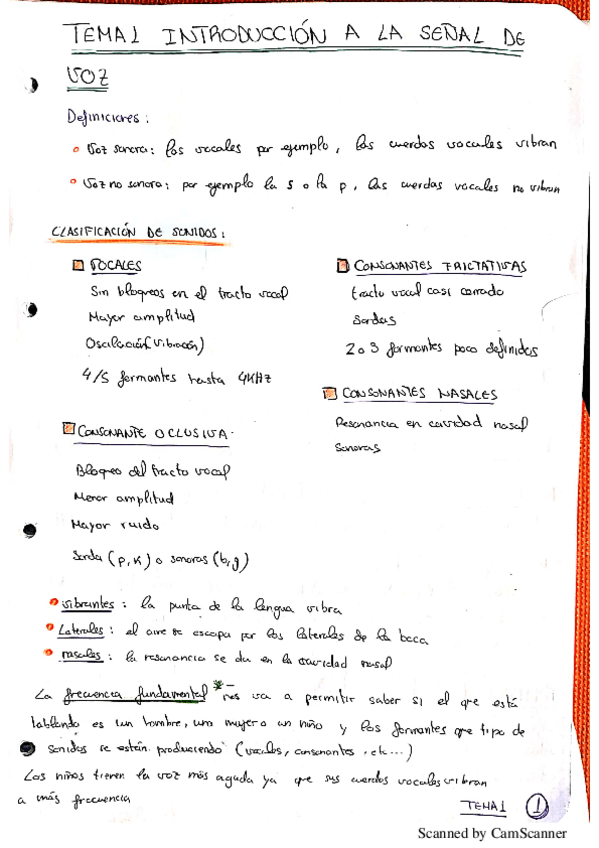 TEMA 1 INTRODUCCIÓN A LA SEÑAL DE
VOZ
Definiciones:
Voz sonora: las vocales por ejemplo, las cuerdas vocales vibran
Voz no sonora: por ejemplo la s o la p, las cuerdas vocales no vibran
CLASIFICACIÓN DE SONIDOS:
VOCALES
Sin bloqueos en el tracto vocal
Mayor amplitud
Oscilación (vibración)
4/5 formantes hasta 4KHz
CONSONANTE OCLUSIVA
Bloqueo del tracto vocal
Menor amplitud
Mayor ruido
Sorda (p, k) o sonoras (b, g)
CONSONANTES FRICTATIVAS
tracto vocal casi cerrado
Sordas
2 o 3 formantes poco definidos
CONSONANTES NASALES
Resonancia en cavidad nasal
Sonoras
vibrantes: la punta de la lengua vibra
Laterales: el aire se escapa por los laterales de la boca
nasales: la resonancia se da en la cavidad nasal
La frecuencia fundamental * nos va a permitir saber si el que está
hablando es un hombre, una mujer o un niño y los formantes que tipo de
sonidos se están produciendo (vocales, consonantes, etc...)
Los niños tienen la voz más aguda ya que sus cuerdas vocales vibran
a más frecuencia
TEMA 1 1
Scanned by CamScanner